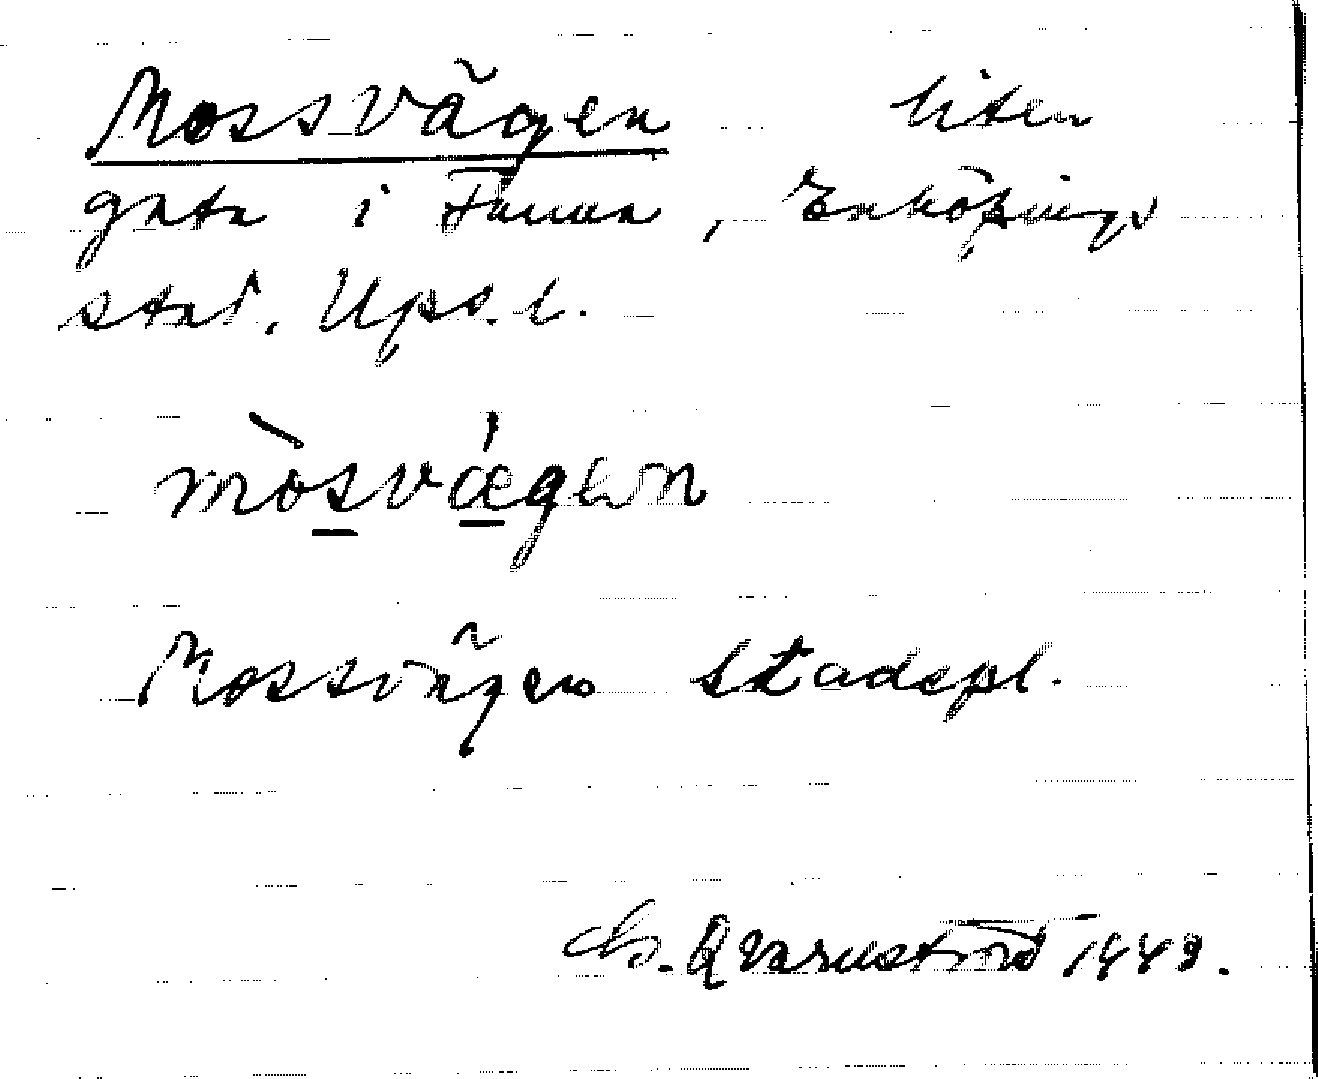 Mossvägen, liten
gata i Fanna, Enköpings
stad. Upps. l.
mòsvǽgen
Mossvägen stadspl.
Qvarnström 1949.